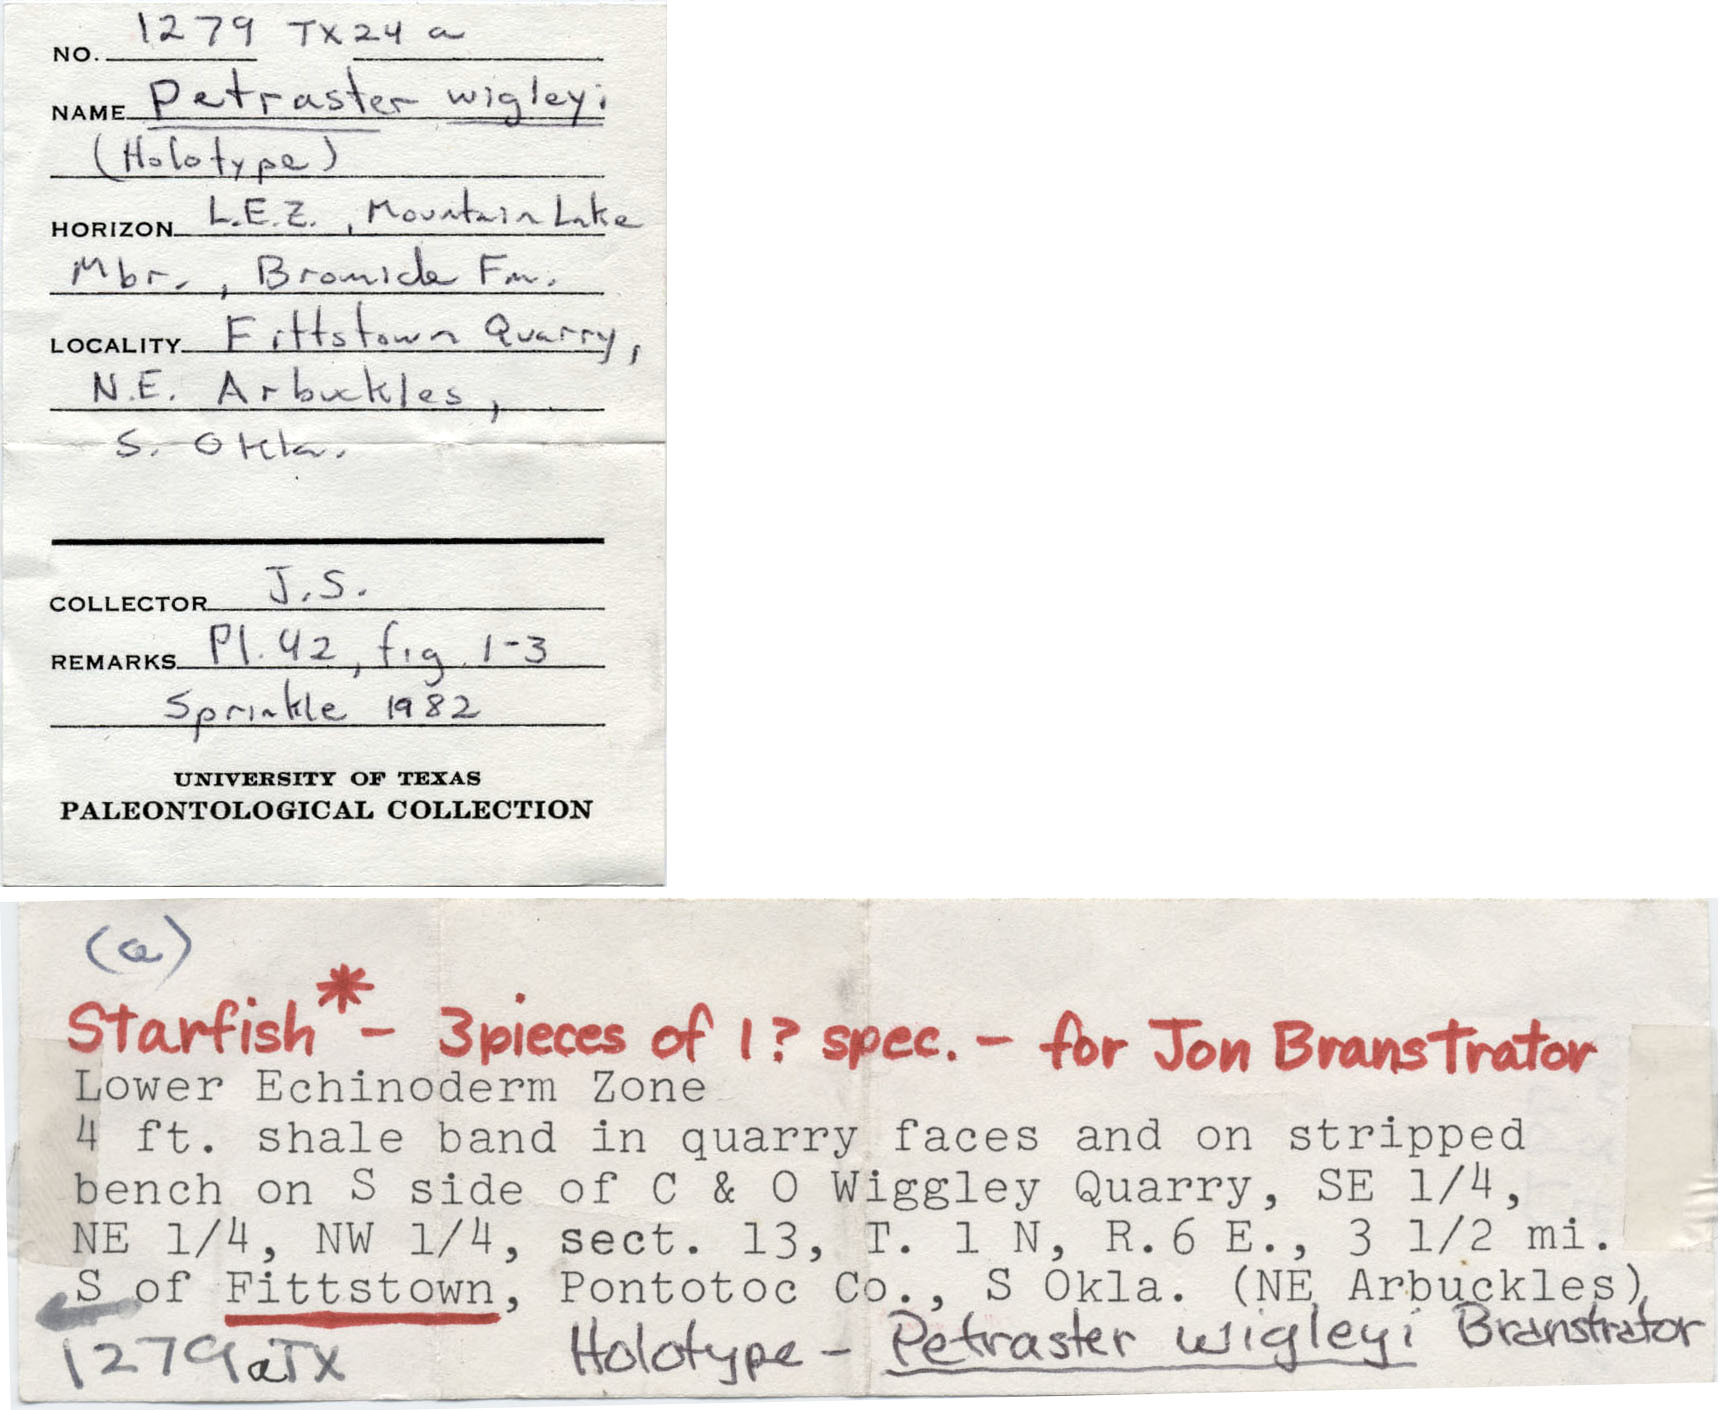 NO. 1279 TX24 a
NAME Petraster wigleyi
(Holotype)
HORIZON L.E.Z., Mountain Lake
Mbr., Bromide Fm.
LOCALITY Fittstown Quarry,
N.E. Arbuckles,
S. Okla.
COLLECTOR J.S.
REMARKS Pl. 42, fig. 1-3
Sprinkle 1982
UNIVERSITY OF TEXAS
PALEONTOLOGICAL COLLECTION
(a)
Starfish* - 3 pieces of 1? spec. - for Jon Branstrator
Lower Echinoderm Zone
4 ft. shale band in quarry faces and on stripped
bench on S side of C & O Wiggley Quarry, SE 1/4,
NE 1/4, NW 1/4, sect. 13, T. 1 N, R.6 E., 3 1/2 mi.
S of Fittstown, Pontotoc Co., S Okla. (NE Arbuckles)
1279aTX Holotype - Petraster wigleyi Branstrator